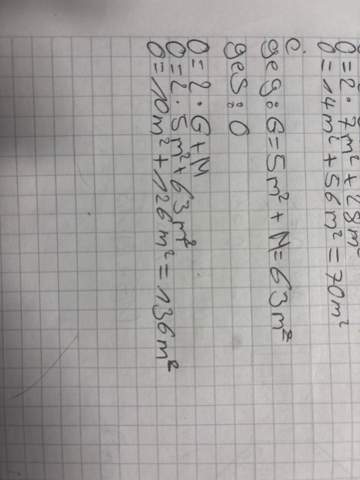 O = 2 · 7m² + 28m²
O = 14m² + 56m² = 70m²
c.
geg: G = 5m² + M = 63m²
ges: O
O = 2 · G + M
O = 2 · 5m² + 63m²
O = 10m² + 126m² = 136m²